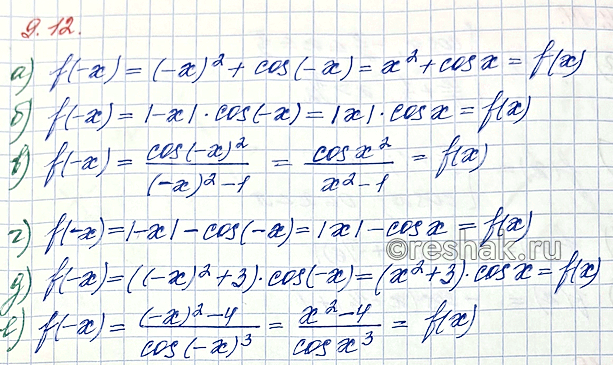 9.12.
а) f(-x) = (-x)² + cos(-x) = x² + cos x = f(x)
б) f(-x) = |-x| · cos(-x) = |x| · cos x = f(x)
в) f(-x) = cos(-x)² / ((-x)² - 1) = cos x² / (x² - 1) = f(x)
г) f(-x) = |-x| - cos(-x) = |x| - cos x = f(x)
©reshak.ru
д) f(-x) = ((-x)² + 3) · cos(-x) = (x² + 3) · cos x = f(x)
е) f(-x) = ((-x)² - 4) / cos(-x)³ = (x² - 4) / cos x³ = f(x)